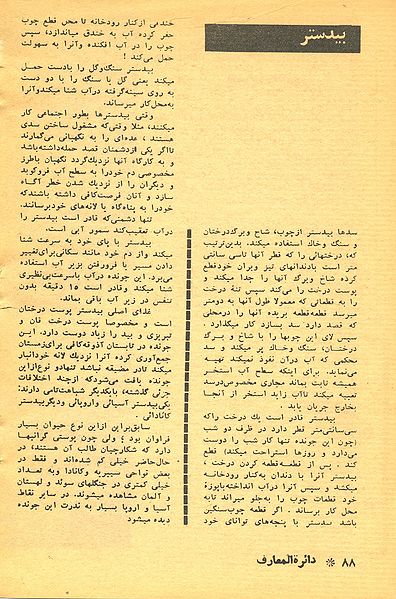 بیدستر
سدها بیدستر ازچوب، شاخ وبرگ‌درختان
و سنگ وخاك استفاده میکند. بدین‌ترتیب
که، درختهائی را که قطر آنها تاسی سانتی
متر است بادندانهای تیز وبران خودقطع
کرده شاخ وبرگ آنها را جدا میکند و
پوست درخت را میکند وسپس تنهٔ درخت
را به قطعاتی که معمولا طول آنها به دومتر
میرسد قطعه‌قطعه بریده آنها را درمحلی
که قصد دارد سد بسازد کار میگذارد.
سپس لای این چوبها را با شاخ و بـرگ
درختان، سنگ وخاك پر میکند و سد
محکمی که آب درآن نفوذ نمیکند تهیه
می‌نماید. برای اینکه سطح آب استخر
همیشه ثابت بماند مجاری مخصوص‌درسد
تعبیه میکند تاآب زاید استخر از آنجا
بخارج جریان یابد.
بیدستر قادر است یك درخت راکه
سی‌سانتی‌متر قطر دارد در ظرف دو شب
(چون این جونده تنها کار شب را دوست
می‌دارد و روزها استراحت میکند) قطع
کند. پس از قطعه‌قطعه کردن درخت،
بیدستر آنرا با دندان به‌کنار رودخانه
میکشد و سپس آنرا درآب انداخته‌باپوزهٔ
خود قطعات چوب را به‌جلو میراند تابه
محل کار برساند. اگر قطعه چوب‌سنگین
باشد بیدستر با پنجه‌های توانای خود
خندقی ازکنار رودخانه تا محل قطع چوب
حفر کرده آب به خندق میاندازد، سپس
چوب را در آب افکنده وآنرا به سهولت
حمل می‌کند!
بیدستر سنگ‌وگل را بادست حمـل
میکند یعنی گل یا سنگ را با دو دست
به روی سینه‌گرفته درآب شنا میکندوآنرا
به‌محل‌کار میرساند.
وقتی بیدسترها بطور اجتماعی کار
میکنند، مثلا وقتی‌که مشغول ساختن سدی
هستند، عده‌ای را به نگهبانی می‌گمارند
تااگر یکی ازدشمنان قصد حمله‌داشته‌باشد
و به کارگاه آنها نزدیك‌گردد نگهبان باطرز
مخصوصی دم خودرا به سطح آب فروکوبد
و دیگران را از نزدیك شدن خطر آگـاه
سازد و آنان فرصت‌کافی داشته باشندکه
خودرا به پناه‌گاه یا لانه‌های خودبرسانند.
تنها دشمنی‌که قادر است بیدستر را
درآب تعقیب‌کند سمور آبی است.
بیدستر با پای خود به سرعت شنا
میکند واز دم خود مانند سکانی‌برای‌تغییر
دادن مسیر یا فرورفتن بزیر آب استفاده
می‌برد. این جونده درآب باسرعت‌بی‌نظیری
شنا میکند وقادر است ۱۵ دقیقه بدون
تنفس در زیر آب باقی بماند.
غذای اصلی بیدستر پوست درختان
است و مخصوصا پوست درخت قان و
تبریزی و بید را زیاد دوست دارد. این
جونده در تابستان آذوقه‌کافی برای‌زمستان
جمع‌آوری کرده آنرا نزدیك لانه خودانبار
میکند تادر مضیقه نباشد تنهادو نوع‌ازاین
جونده یافت می‌شودکه ازچند اختلافات
جزئی گذشته، بایکدیگر شباهت‌تامی دارند:
یکی‌بیدستر آسیائی واروپائی ودیگربیدستر
کانادائی.
سابق‌براین ازاین نوع حیوان بسیار
فراوان بود؛ ولی چون پوستی گرانبها
دارد که شکارچیان طالب آن هستند، در
حال‌حاضر خیلی کم شده‌اند و فقط در
بعض نواحی سیبریه وکانادا وبه تعداد
خیلی کمتری در جنگلهای سوئد و لهستان
و آلمان مشاهده میشوند. در سایر نقاط
آسیا و اروپا بسیار به ندرت این جونده
دیده میشود
۸۸ * دائرةالمعارف